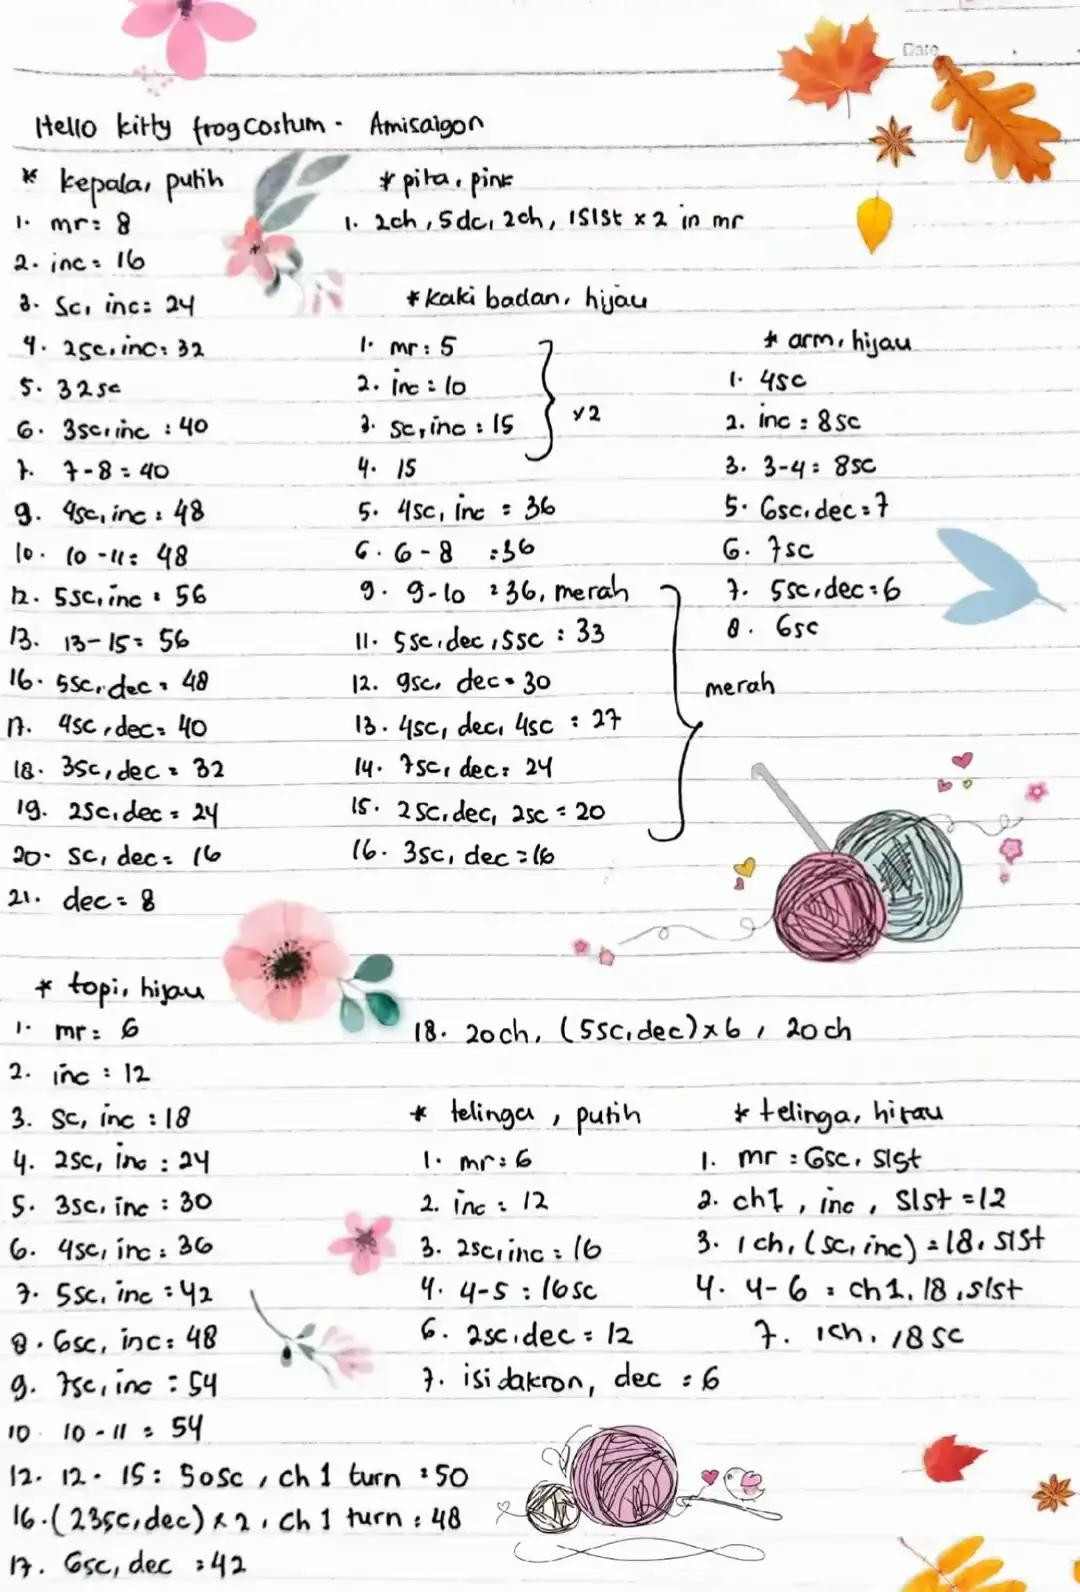 Date
Hello kitty frog Costum - Amisaigon
* kepala, putih
1. mr: 8
2. inc = 16
3. Sc, inc: 24
4. 2sc, inc: 32
5. 32sc
6. 3sc, inc : 40
7. 7-8 = 40
9. 4sc, inc : 48
10. 10-11: 48
12. 5sc, inc : 56
13. 13-15 = 56
16. 5sc, dec = 48
17. 4sc, dec = 40
18. 3sc, dec = 32
19. 2sc, dec = 24
20. sc, dec = 16
21. dec = 8
* pita, pink
1. 2ch, 5dc, 2ch, 1slst x 2 in mr
* kaki badan, hijau
1. mr : 5
2. inc : 10
3. sc, inc : 15
x2
4. 15
5. 4sc, inc = 36
6. 6-8 :36
9. 9-10 : 36, merah
11. 5sc, dec, 5sc : 33
12. 9sc, dec = 30
13. 4sc, dec, 4sc : 27
14. 7sc, dec : 24
15. 2sc, dec, 2sc = 20
16. 3sc, dec = 16
merah
* arm, hijau
1. 4sc
2. inc = 8sc
3. 3-4 : 8sc
5. 6sc, dec = 7
6. 7sc
7. 5sc, dec = 6
8. 6sc
* topi, hijau
1. mr : 6
2. inc : 12
3. sc, inc : 18
4. 2sc, inc : 24
5. 3sc, inc : 30
6. 4sc, inc : 36
7. 5sc, inc : 42
8. 6sc, inc : 48
9. 7sc, inc : 54
10 10-11 = 54
12. 12-15: 50sc, ch 1 turn : 50
16. (23sc, dec) x 2, ch 1 turn : 48
17. 6sc, dec : 42
18. 20ch, (5sc, dec) x 6, 20ch
* telinga, putih
1. mr : 6
2. inc : 12
3. 2sc, inc = 16
4. 4-5 : 16sc
6. 2sc, dec = 12
7. isi dakron, dec : 6
* telinga, hirau
1. mr : 6sc, slst
2. ch1, inc, slst = 12
3. 1ch, (sc, inc) = 18, slst
4. 4-6 = ch1, 18, slst
7. 1ch, 18sc